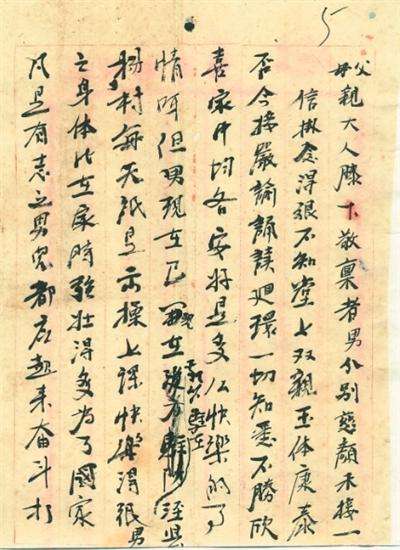 5
父母親大人膝下敬稟者男分別慈顏未接一
信掛念得很不知堂上双親玉体康泰
否今接嚴諭誦讀廻環一切知悉不勝欣
喜家中均各安好是多么快樂的事
情呵但男現在已在涇县
楊村每天祇是出操上課快樂得很男
之身体比在家時強壯得多为了國家
凡是有志之男兒都应起來奋斗打